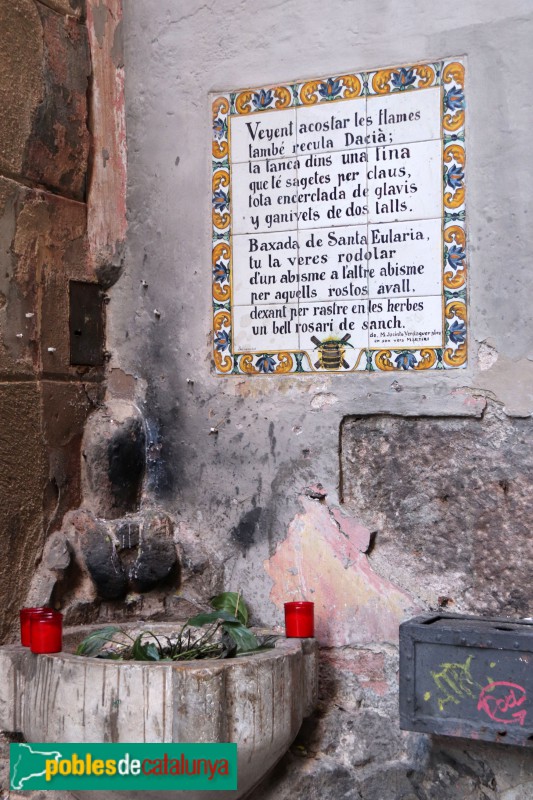 Veyent acostar les flames
també recula Dacià;
la tanca dins una tina
que té sagetes per claus,
tota encerclada de glavis
y ganivels de dos talls.
Baxada de Santa Eularia,
tu la veres rodolar
d'un abisme a l'altre abisme
per aquells rostos avall,
dexant per rastre en les herbes
un bell rosari de sanch.
de, M. Jacinto Verdaguer pbre
poblesdecatalunya